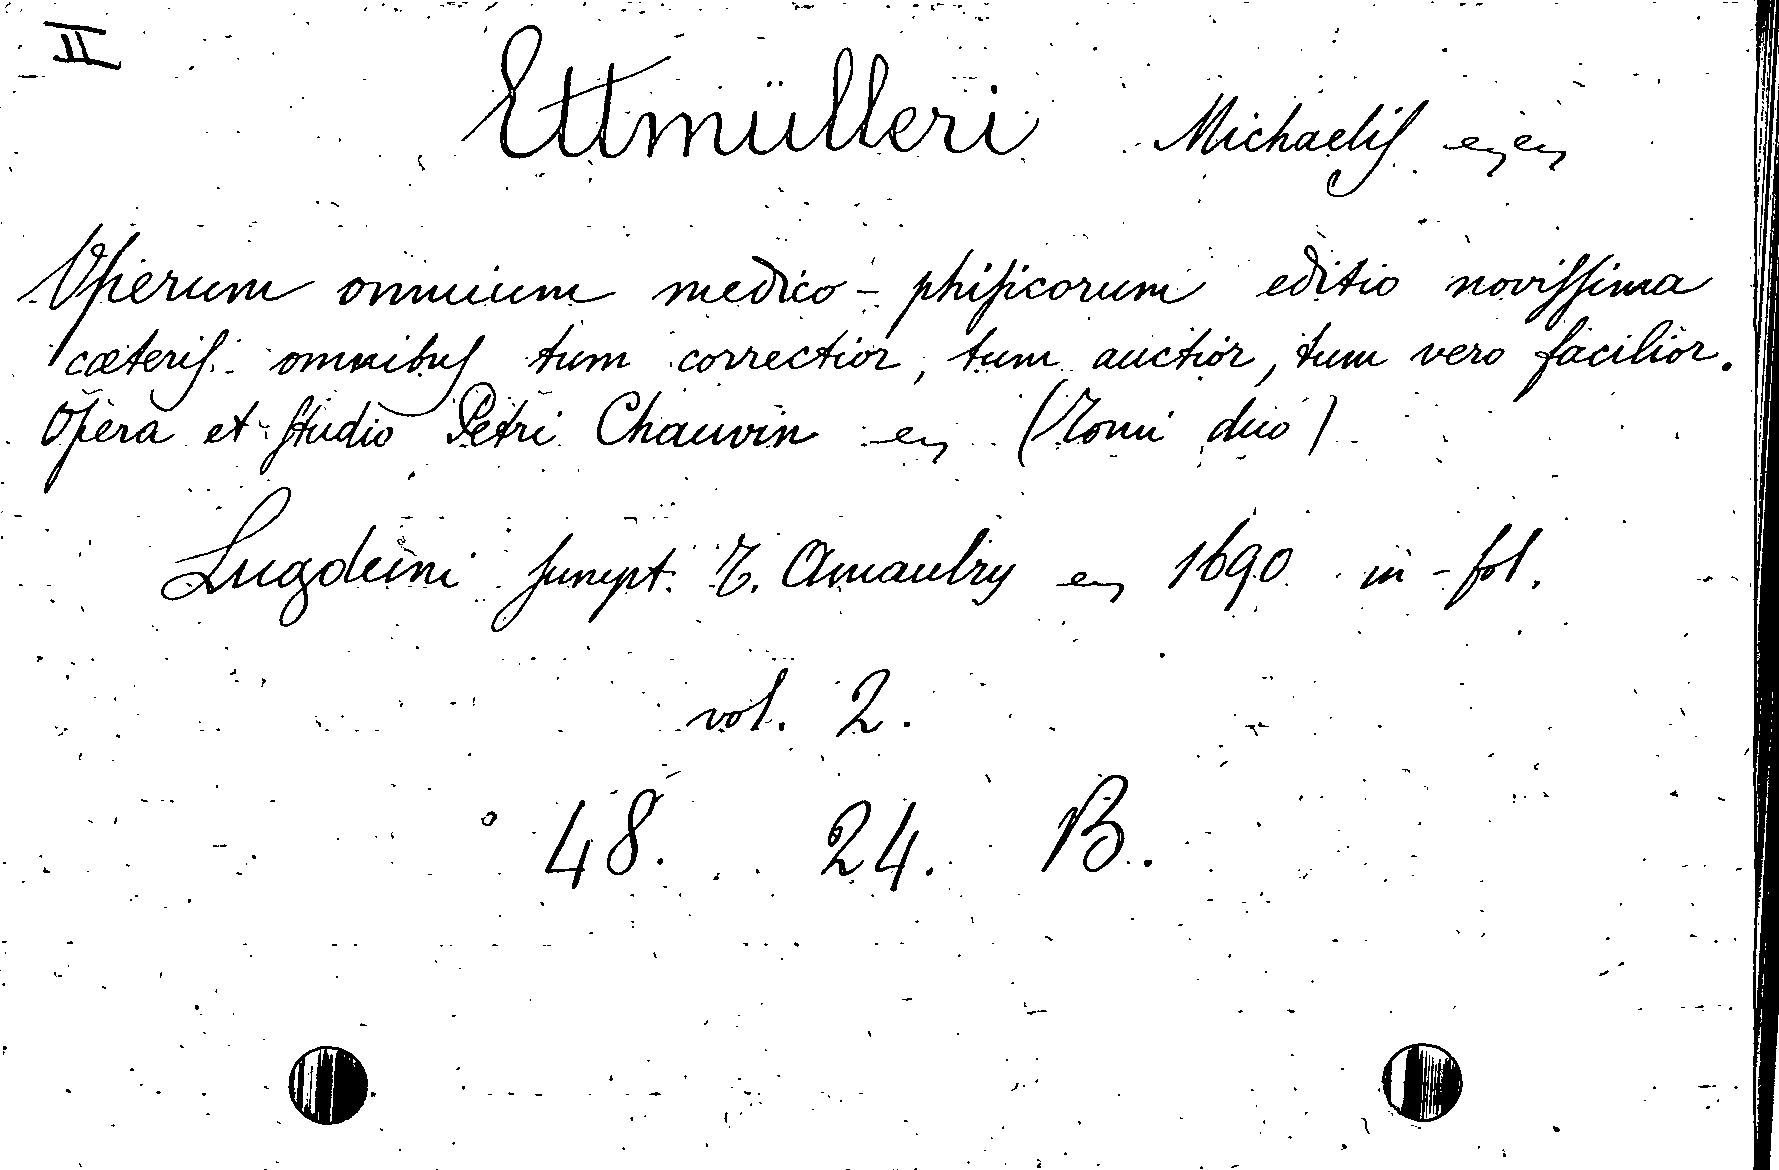 II
Ettmülleri Michaelis
Operum omnium medico - phisicorum editio novissima
cæteris omnibus tum correctior, tum auctior, tum vero facilior.
Opera et studio Petri Chauvin (Tomi duo)
Lugduni sumpt. T. Amaulry 1690 in - fol.
vol. 2.
48. 24. B.